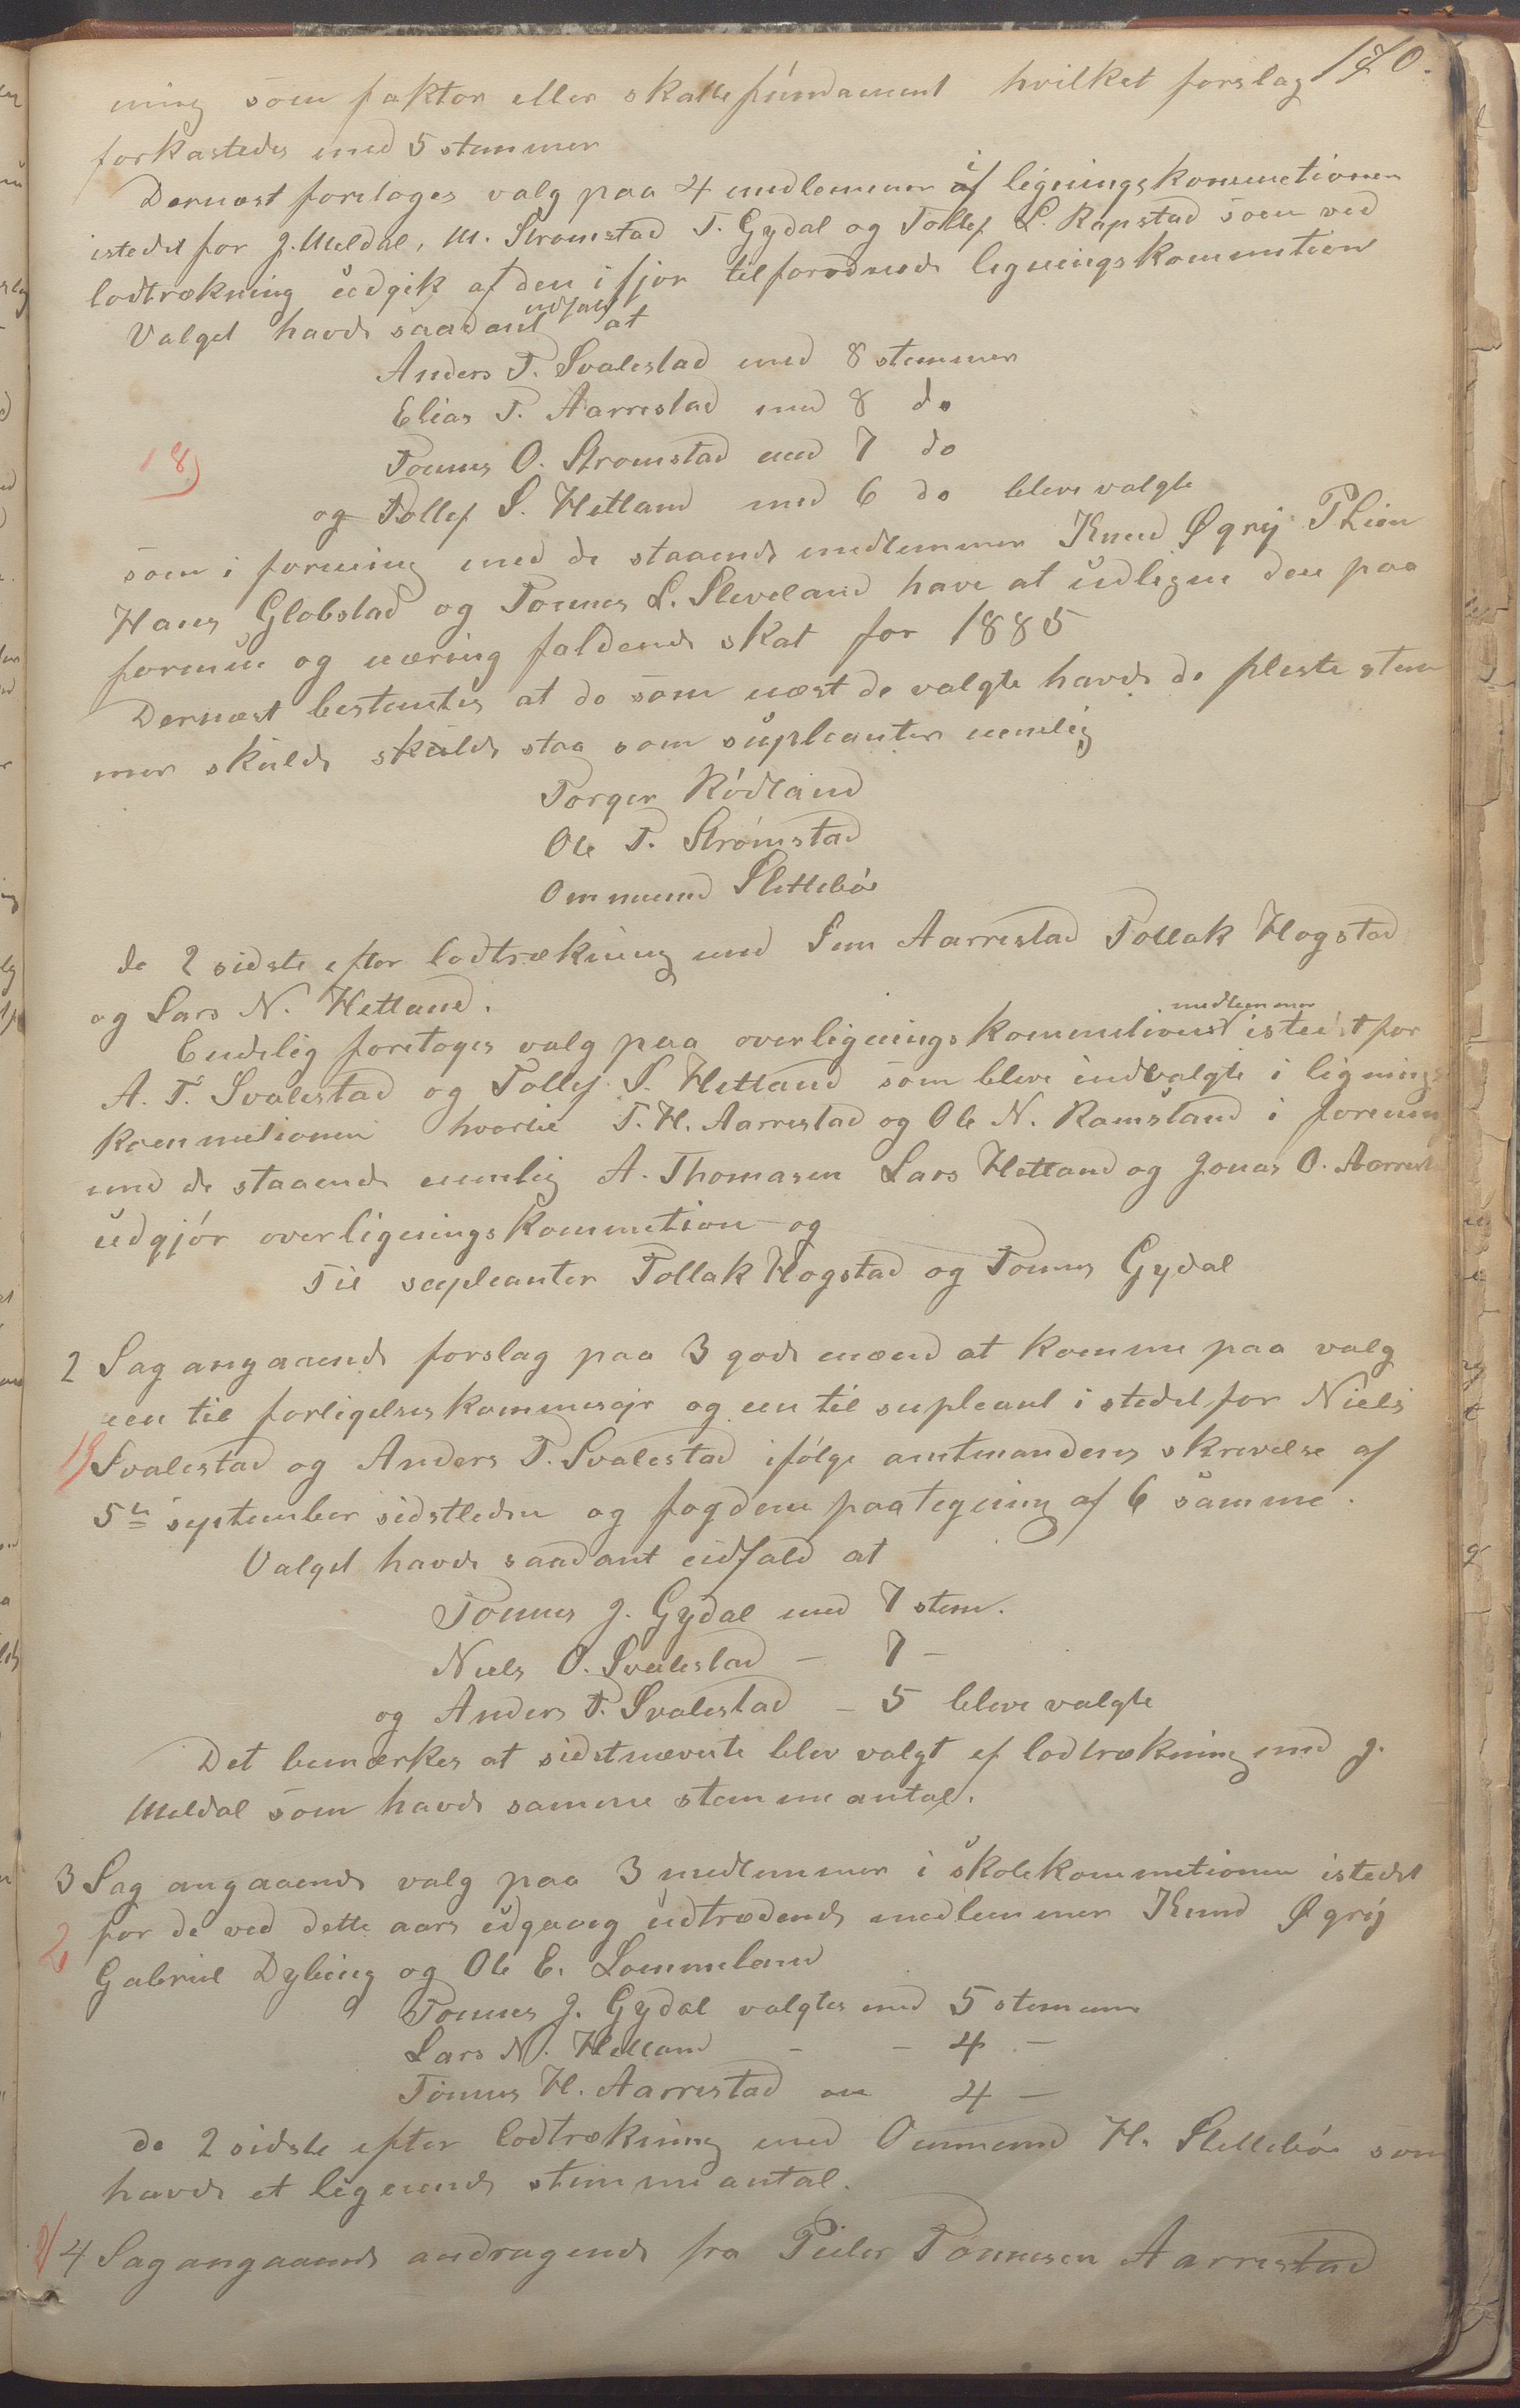 170.
ning som faktor eller skattefundament hvilket forslag
forkastedes med 5 stemmer
Dernæst foretoges valg paa 4 medlemmer i ligningskommetionen
istedet for J. Meldal, M. Strømstad T. Gydal og Tollef L. Rapstad som ved
lodtrækning udgik af den i fjor tilforodnede ligningskommetion
Valget havde saadant udfald at
Anders T. Svalestad med 8 stemmer
Elias T. Aarrestad med 8 do
18)
Tønnes O. Stromstad med 7 do
og Tollef S. Hetland med 6 do bleve valgte
som i forening med de staaende medlemmer Knud Øgrij T Lien
Hans Globstad og Tønnes L. Sleveland have at udligne den paa
formue og næring faldende skat for 1885
Dernæst bestemtes at de som næst de valgte havde de fleste stem
mer skulde skulde staa som supleanter nemlig
Torger Rödland
Ole T. Strömstad
Ommund Slettebö
de 2 sidste efter lodtrækning med Sem Aarrestad Tollak Hogstad
og Lars N. Hetland.
Endelig foretoges valg paa overligningskommetions medlemmer istedet for
A. T. Svalestad og Tollef S. Hetland som bleve indvalgte i lignings
kommetionen hvortil T. H. Aarrestad og Ole N. Ramsland i forening
med de staaende nemlig A. Thomasen Lars Hetland og Jonas O. Aarrest
udgjör overligningskommetion og
Til supleanter Tollak Hogstad og Tønnes Gydal
2 Sag angaaende forslag paa 3 gode mænd at komme paa valg
een til forligelseskommesær og een til supleant i stedet for Niels
19) Svalestad og Anders T. Svalestad ifölge amtmandens skrivelse af
5te september sidstleden og fogdens paategning af 6 samme.
Valget havde saadant udfald at
Tønnes J. Gydal med 7 stem.
Niels O. Svalestad – 7 –
og Anders T. Svalestad – 5 bleve valgte
Det bemærkes at sidstnævnte blev valgt ef lodtrækning med J.
Meldal som havde samme stemmeantal.
3 Sag angaaende valg paa 3 medlemmer i skolekommetionen istedet
2 for de ved dette aars udgang udtrædende medlemmer Knud Øgrij
Gabriel Dybing og Ole E. Lommeland
Tønnes J. Gydal valgtes med 5 stemmer
Lars N. Hetland – – 4 –
Tönnes H. Aarrestad 4 –
de 2 sidste efter lodtrækning med Ommund H. Slettebö som
havde et ligeende stemmeantal.
4 Sag angaaende andragende fra Peder Tönnesen Aarrestad